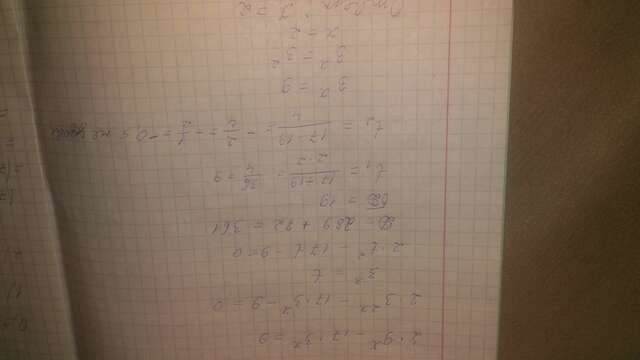 2·9ˣ - 17·3ˣ = 9
2·3²ˣ - 17·3ˣ - 9 = 0
3ˣ = t
2·t² - 17t - 9 = 0
D = 289 + 72 = 361
√D = 19
t₁ = (17+19)/(2·2) = 36/4 = 9
t₂ = (17-19)/4 = -2/4 = -1/2 = -0,5 не
3ˣ = 9
3ˣ = 3²
x = 2
Ответ: x = 2